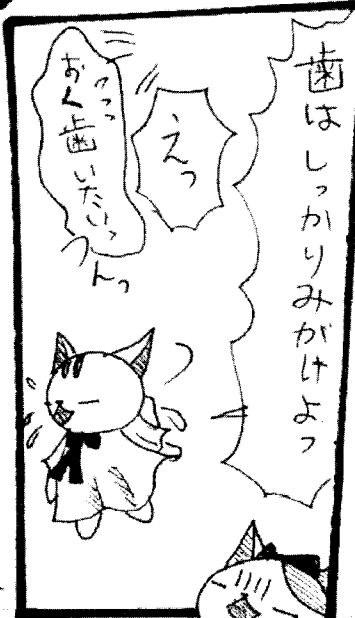 歯はしっかりみがけよっ
えっ
うっっ
おく歯いたいっ
うんっ